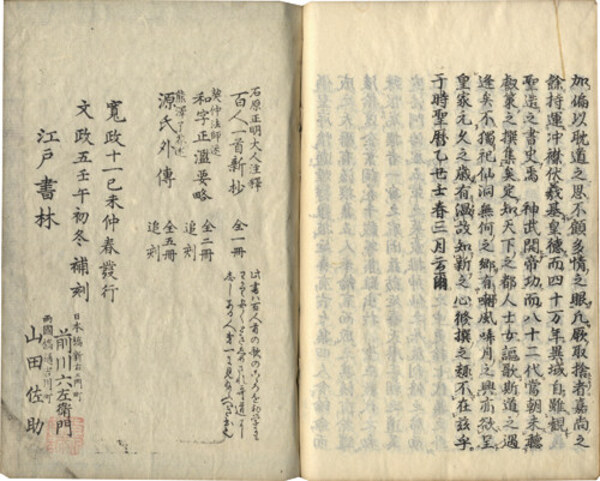 加偏以耽道之思不顧多情之眼凡厥取捨者嘉尚之
餘特運冲襟伏羲基皇德而四十万年異域自雖観
聖造之書史焉 神武開帝功而八十二代當朝未聽
叡策之撰集矣定知天下之都人士女謳歌斯道之遇
逢矣不獨記仙洞無何之鄉有嘲風哢月之興亦欲呈
皇家元久之歳有温故知新之心修撰之趣不在茲乎
于時聖暦乙丑王春三月云爾
石原正明大人注釋
百人一首新抄 全一冊
契沖法師述
和字正濫要略 全二冊 追刻
熊澤了介述
源氏外傳 全五冊 追刻
寛政十一己未仲春發行
文政五壬午初冬補刻
江戸書林
日本橋新右衛門町
前川六左衛門
両國橋通吉川町
山田佐助